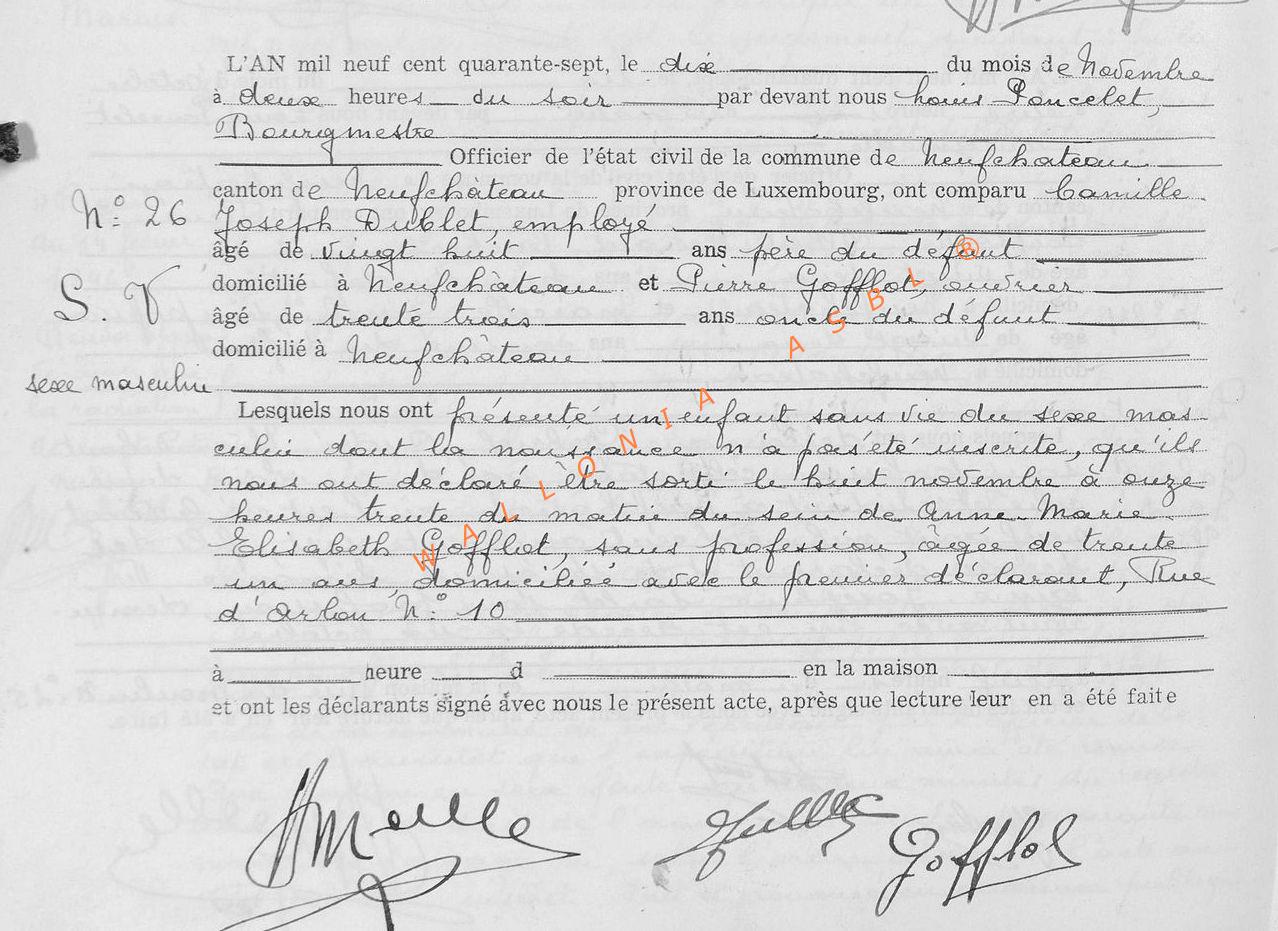 L'AN mil neuf cent quarante-sept, le dix du mois de Novembre
à deux heures du soir par devant nous Louis Poncelet,
Bourgmestre
Officier de l'état civil de la commune de Neufchateau
N° 26
canton de Neufchâteau province de Luxembourg, ont comparu Camille
Joseph Dublet, employé
âgé de vingt huit ans père du défunt
S. V
domicilié à Neufchâteau et Pierre Gofflot, ouvrier
âgé de trente trois ans oncle du défunt
domicilié à Neufchâteau
sexe masculin
Lesquels nous ont présenté un enfant sans vie du sexe mas-
culin dont la naissance n'a pas été inscrite, qu'ils
nous ont déclaré être sorti le huit novembre à onze
heures trente du matin du sein de Anne Marie
Elisabeth Gofflot, sans profession, âgée de trente
un ans domiciliée avec le premier déclarant, Rue
d'Arlon N° 10
à heure d en la maison
et ont les déclarants signé avec nous le présent acte, après que lecture leur en a été faite
Gofflot
WALLONIA ASBL ®